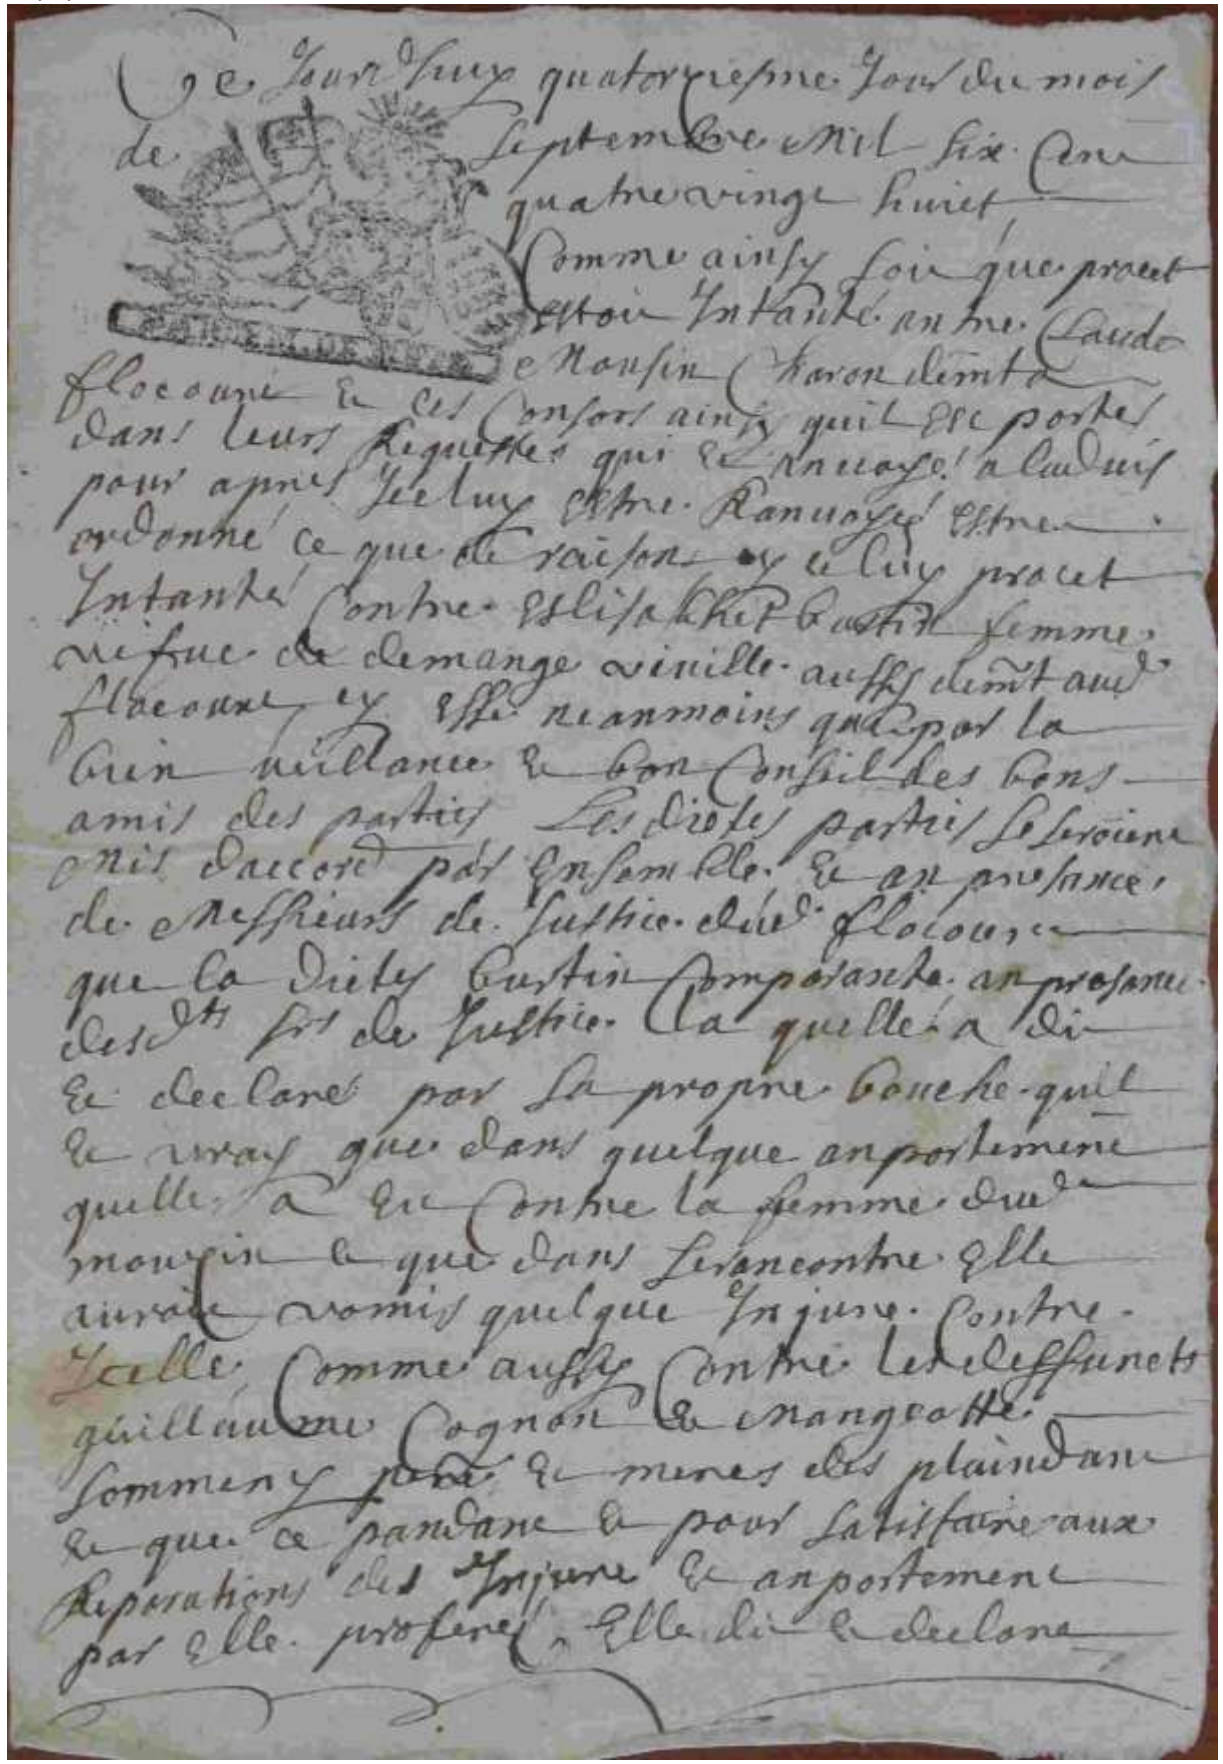 Ce Jourdhuy quatorziesme Jour du mois
de Septembre Mil Six Cent
quatre vingt huict
Comme ainsy soit que procet
estoit Intanté antre Claude
Mousin Charon demt a
flocourt et ces Consors ainsy quil est portes
dans leurs Requestes qui est anuoyé a laduis
pour apres Iceluy estre Ranuoyé estre
ordonné ce que de raison yceluy procet
Intanté Contre Eslisabhet bustin femme
de demange vinille aussy demt aud
flocourt neanmoins que par la
bien uillance et bon Conseil des bons
amis des parties Lesdictes parties se seroient
Mis daccord par Ensemble et an presance
de Messieurs de Justice dud flocourt
que la Dictes bustin Comparante an presance
desdts srs de Justice la quelle a dit
et declaré par sa propre bouche quil
et vray que dans quelque anportement
quelle a Eu Contre la femme dud
mouzin et que dans Serancontre Elle
auroit vomis quelque Injure Contre
Icelle Comme aussy Contre les deffuncts
guillaume Cognon et Mangeotte
Sommeny pere et meres des plaindant
et que ce pandant et pour satisfaire aux
Reparations des Injure et anportement
par Elle proferés Elle dit et declare